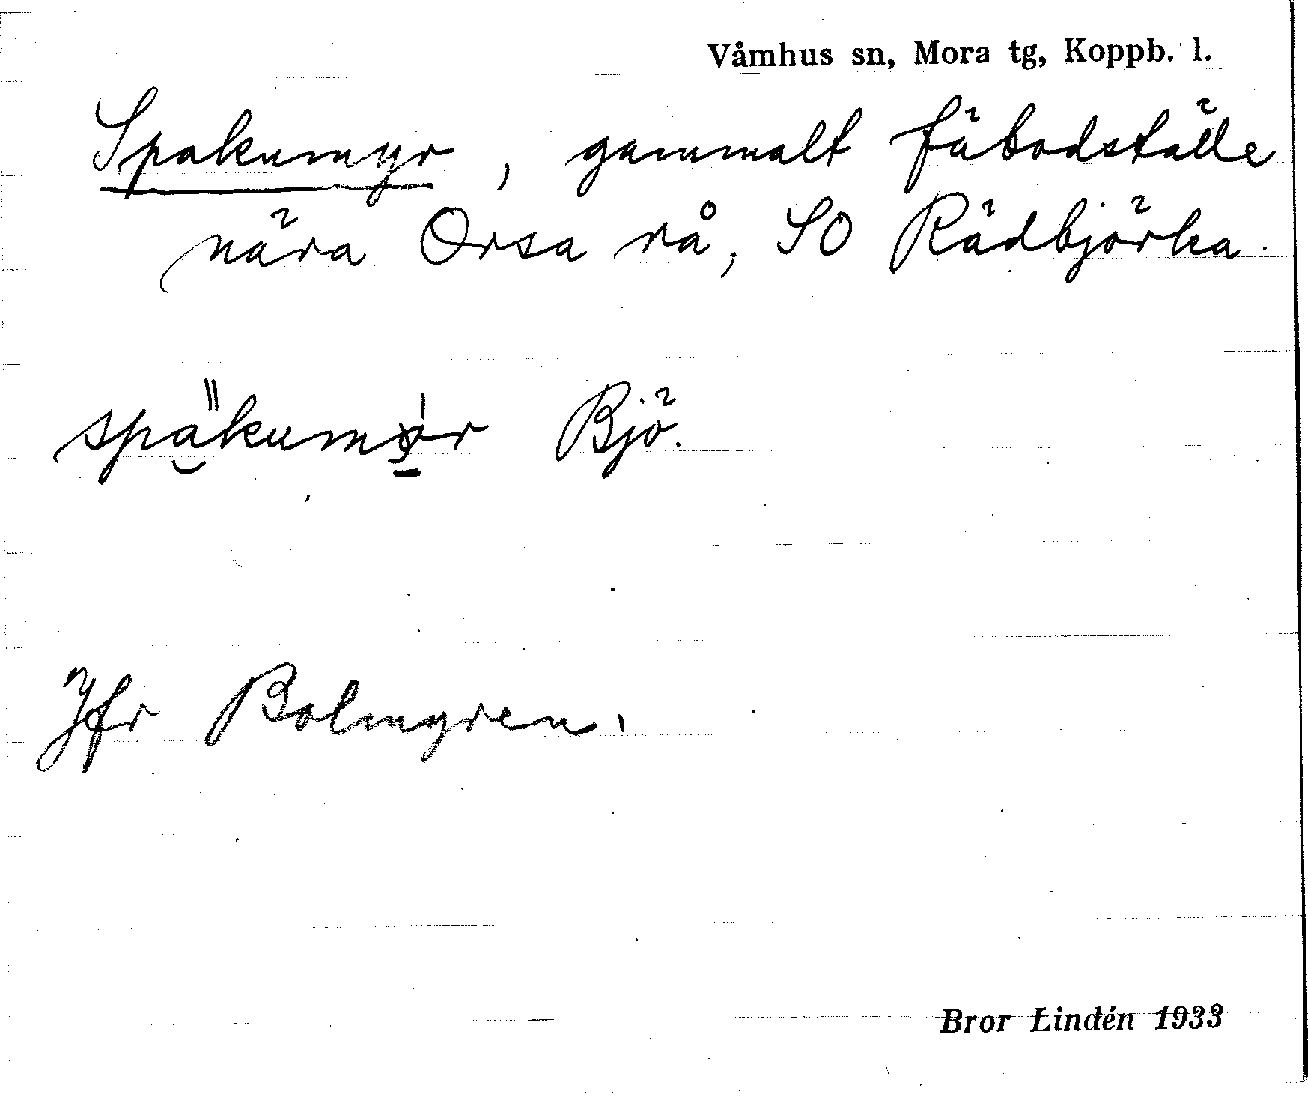 Våmhus sn, Mora tg, Koppb. l.
Spakumyr, gammalt fäbodställe
nära Orsa rå, SO Rädbjörka.
Bjö.
Jfr Bolmyren.
Bror Lindén 1933